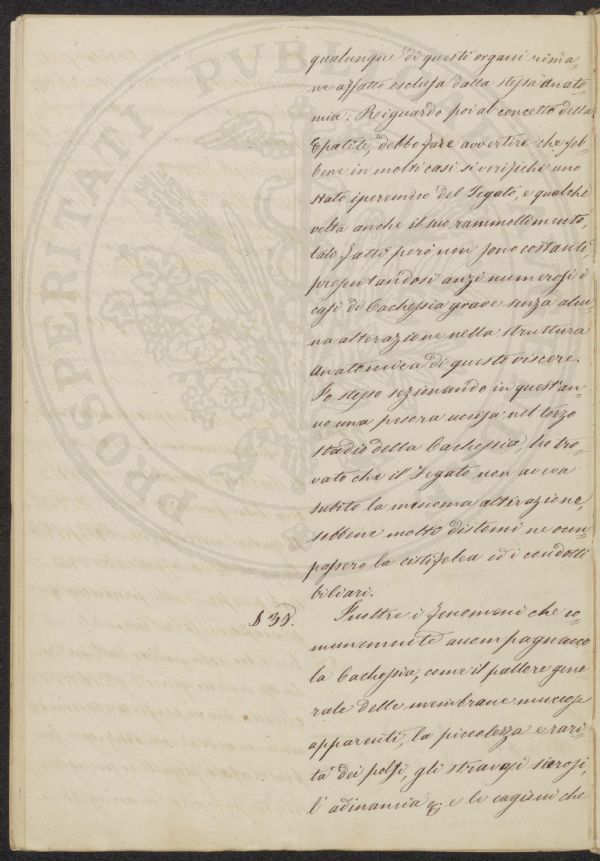 qualunque di questi organi rima-
ne affatto esclusa dalla stessa anato-
mia. Riguardo poi al concetto della
Epatite, debbo fare avvertire che seb-
bene in molti casi si verifichi uno
stato iperemico del Fegato, e qualche
volta anche il suo rammollimento,
tali fatti però non sono costanti,
presentandosi anzi numerosi i
casi di Cachessia grave senza alcu-
na alterazione nella struttura
anatomica di questo viscere.
Io stesso sezionando in quest'an-
no una pecora uccisa nel terzo
stadio della Cachessia, ho tro-
vato che il Fegato non aveva
subito la menoma alterazione,
sebbene molti distomi ne occu-
passero la cistifelea ed i condotti
biliari.
§ 39. Inoltre i fenomeni che co-
munemente accompagnano
la Cachessia, come il pallore gene-
rale delle membrane muccose
apparenti, la picciolezza e rari-
tà dei polsi, gli stravasi sierosi,
l'adinamia &, e le cagioni che
PROSPERITATI PVBL